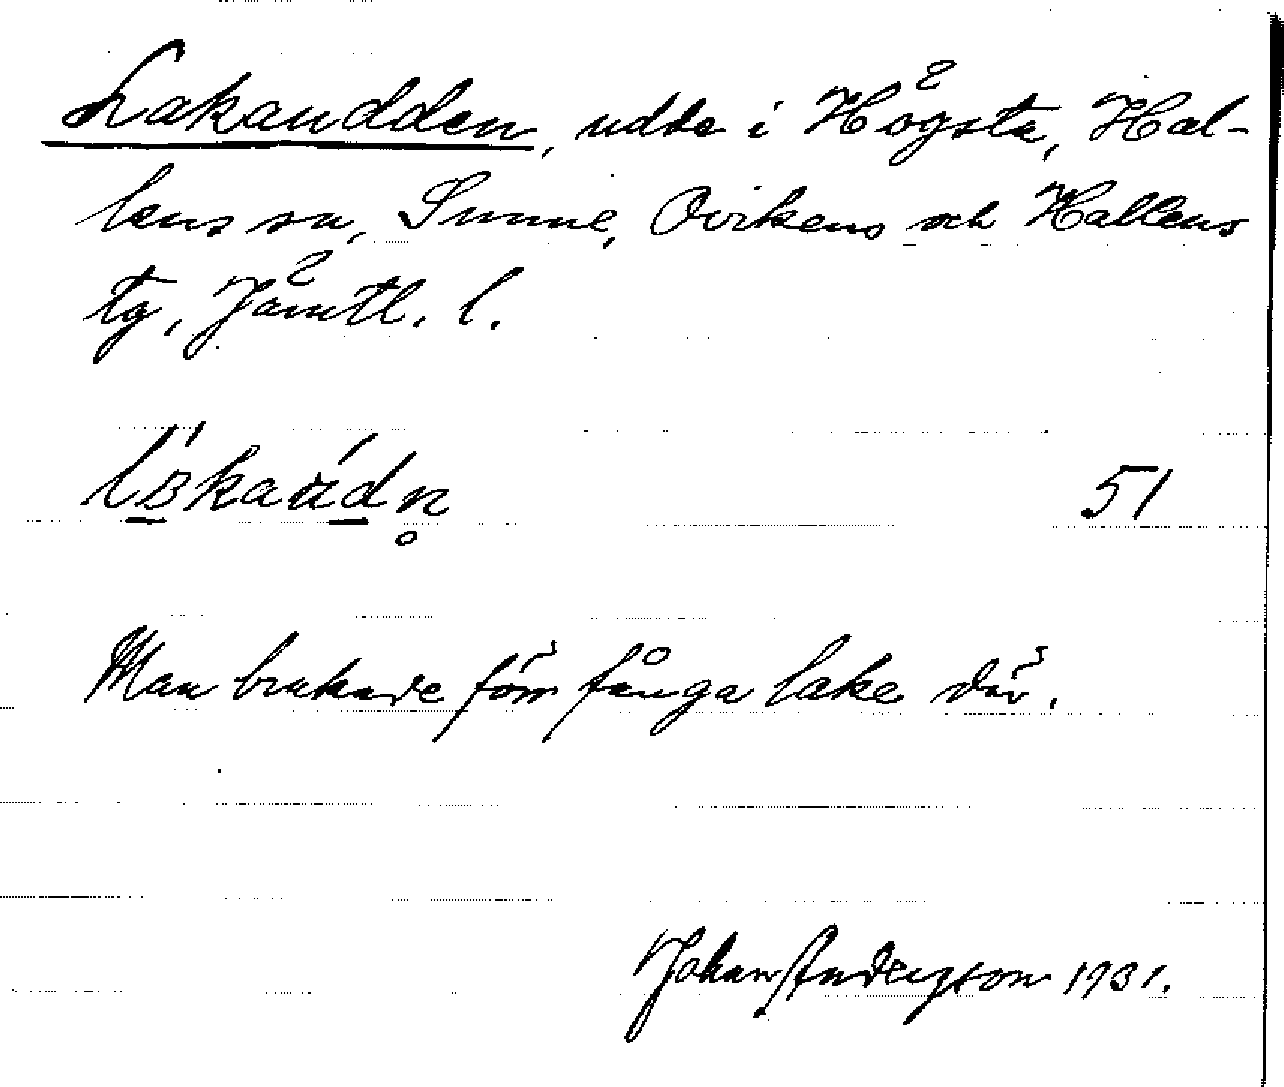 Lakaudden, udde i Högsta, Hal-
lens sn, Sunne, Ovikens och Hallens
tg, Jämtl. l.
51
Man brukade förr fånga lake där.
Johan Anderzson 1931.